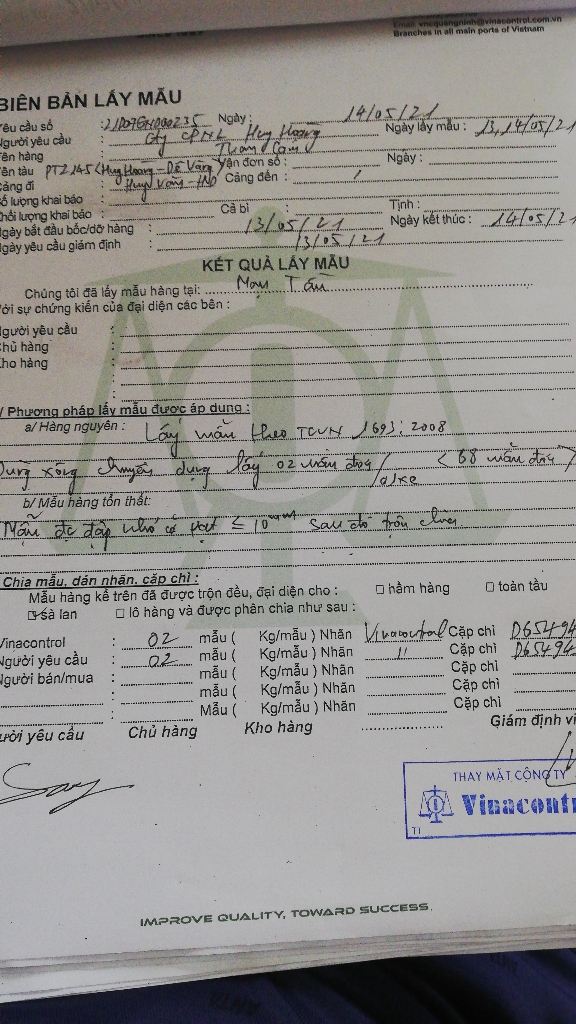 Email: vncquangninh@vinacontrol.com.vn
Branches in all main ports of Vietnam
BIÊN BẢN LẤY MẪU
Yêu cầu số : Ngày : 14/05/21
Người yêu cầu : Cty CPNL Huy Hoàng Ngày lấy mẫu : 13,14/05/21
Tên hàng : Than Cám
Tên tàu PTZ145 (Huy Hoàng - Vận đơn số : Ngày :
Cảng đi : Cảng đến :
Số lượng khai báo : Cả bì : Tịnh :
Khối lượng khai báo :
Ngày bắt đầu bốc/dỡ hàng : 13/05/21 Ngày kết thúc : 14/05/21
Ngày yêu cầu giám định : 13/05/21
KẾT QUẢ LẤY MẪU
Chúng tôi đã lấy mẫu hàng tại: Mạn Tàu
Với sự chứng kiến của đại diện các bên :
Người yêu cầu :
Chủ hàng :
Kho hàng :
/ Phương pháp lấy mẫu được áp dụng :
a/ Hàng nguyên : Lấy mẫu theo TCVN 1693:2008
Dùng xẻng chuyên dụng lấy 02 mẫu đơn/ (68 mẫu đơn)
b/ Mẫu hàng tổn thất:
Mẫu đc đập nhỏ cỡ hạt ≤ 10mm sau đó trộn
Chia mẫu, dán nhãn, cặp chì :
Mẫu hàng kể trên đã được trộn đều, đại diện cho : □ hầm hàng □ toàn tàu
☑ sà lan □ lô hàng và được phân chia như sau :
Vinacontrol : 02 mẫu ( Kg/mẫu ) Nhãn Vinacontrol Cặp chì D65494
Người yêu cầu : 02 mẫu ( Kg/mẫu ) Nhãn 11 Cặp chì D65494
Người bán/mua : mẫu ( Kg/mẫu ) Nhãn Cặp chì
: mẫu ( Kg/mẫu ) Nhãn Cặp chì
: Mẫu ( Kg/mẫu ) Nhãn Cặp chì
Người yêu cầu Chủ hàng Kho hàng Giám định vi
THAY MẶT CÔNG TY
Vinacontr
IMPROVE QUALITY, TOWARD SUCCESS.